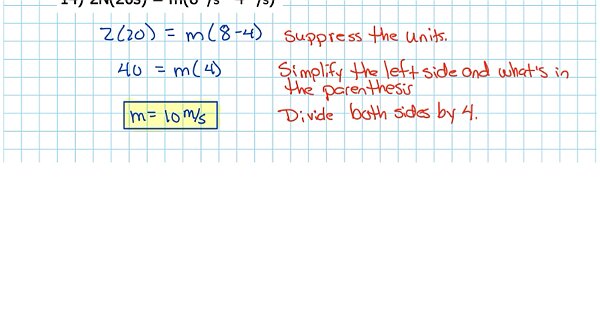 2(20) = m(8-4) suppress the units.
40 = m(4) Simplify the left side and what's in
the parenthesis
m = 10 m/s Divide both sides by 4.